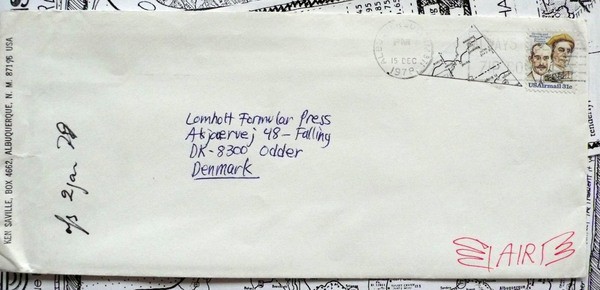 KEN SAVILLE, BOX 4662, ALBUQUERQUE, N. M. 87196 USA
2 Jan 79
Lomholt Formular Press
Falling
DK-8300 Odder
Denmark
PM
15 DEC
1978
USAirmail 31c
AIR